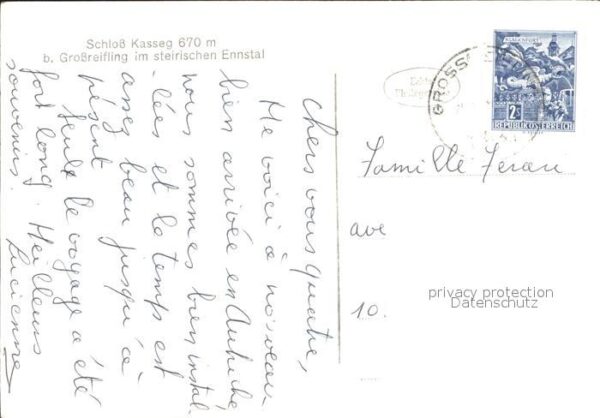 Schloß Kasseg 670 m
b. Großreifling im steirischen Ennstal
Chers vous quatre,
Me voici à nouveau
bien arrivée en Autriche
nous sommes bien instal-
lées et le temps est
assez beau jusqu'à
présent
Seule le voyage a été
fort long. Meilleurs
souvenirs.
Lucienne
Echte
Photographie
GROSS
KLAGENFURT
2S
REPUBLIK ÖSTERREICH
Famille
ave
10.
privacy protection
Datenschutz